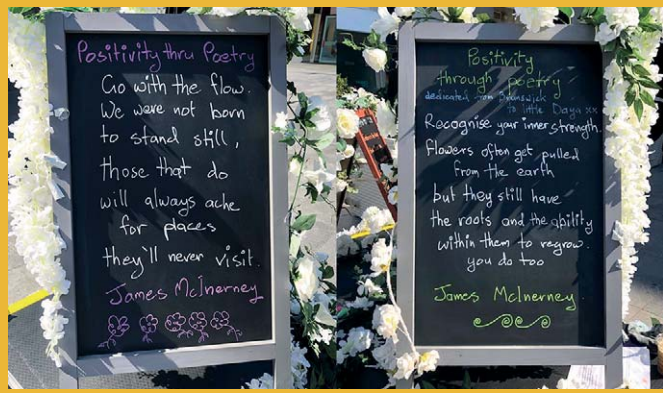 Positivity thru Poetry
Go with the flow.
We were not born
to stand still,
those that do
will always ache
for places
they'll never visit.
James McInerney
Positivity
through poetry
dedicated from Brunswick
to little Daya xx
Recognise your inner strength.
flowers often get pulled
from the earth
but they still have
the roots and the ability
within them to regrow.
you do too
James McInerney